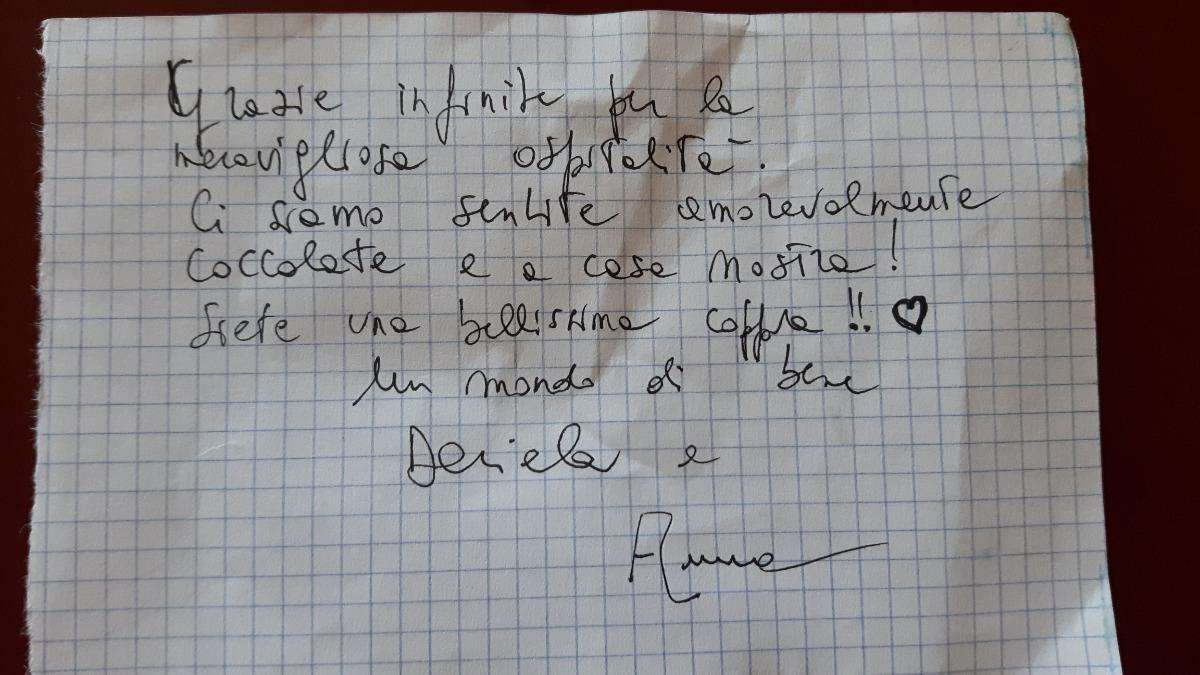 Grazie infinite per la
meravigliosa ospitalità.
Ci siamo sentite amorevolmente
coccolate e a casa nostra!
Siete una bellissima coppia!! ♥
Un mondo di bene
Daniela e
Anna